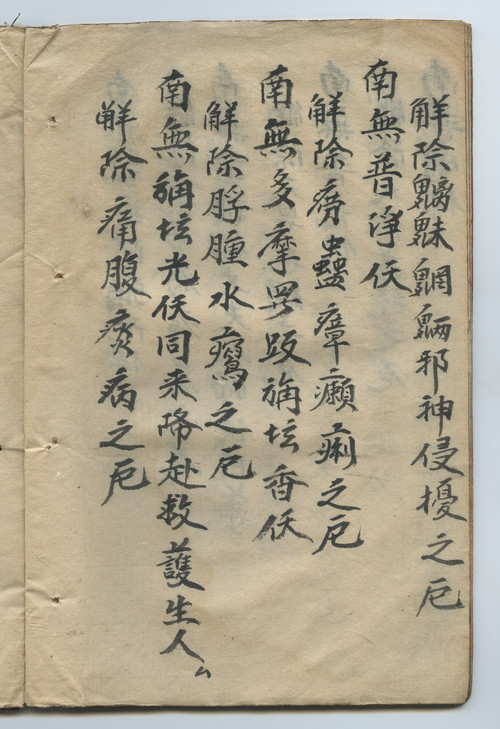 觧除魑魅魍魎邪神侵擾之厄
南無普淨仸
觧除蠱瘴癩痢之厄
南無多摩罗跋旃坛香仸
觧除脬腫水之厄
南無旃坛光仸同来降赴救護生人ム
觧除痛腹病之厄